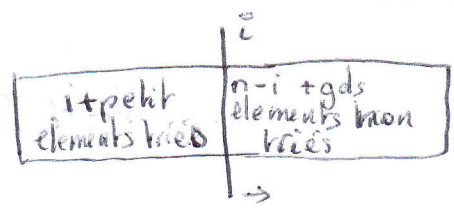 i
i+petit
elements triés
n-i +gds
elements non
triés